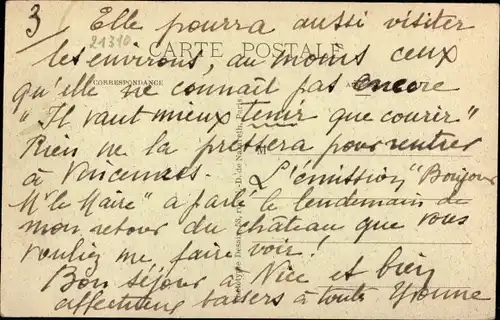 3/ Elle pourra aussi visiter
21310
CARTE POSTALE
les environs, du moins ceux
CORRESPONDANCE
qu'elle ne connaît pas encore
"Il vaut mieux tenir que courir"
Rien ne la pressera pour rentrer
à Vincennes. L'émission "Bonjour
Mr le Maire" a parlé le lendemain de
mon retour du château que vous
vouliez me faire voir!
Bon séjour à Nice et bien
affectueux baisers à toute Yvonne